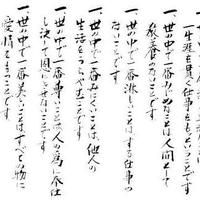 一生涯を貫く仕事をもつことです
一、世の中で一番みじめなことは人間として
教養のないことです
一、世の中で一番淋しいことはする仕事の
ないことです
一、世の中で一番みにくいことは他人の
生活をうらやむことです
一、世の中で一番尊いことは人の為に奉仕
し決して恩にきせないことです
一、世の中で一番美しいことはすべての物に
愛情をもつことです